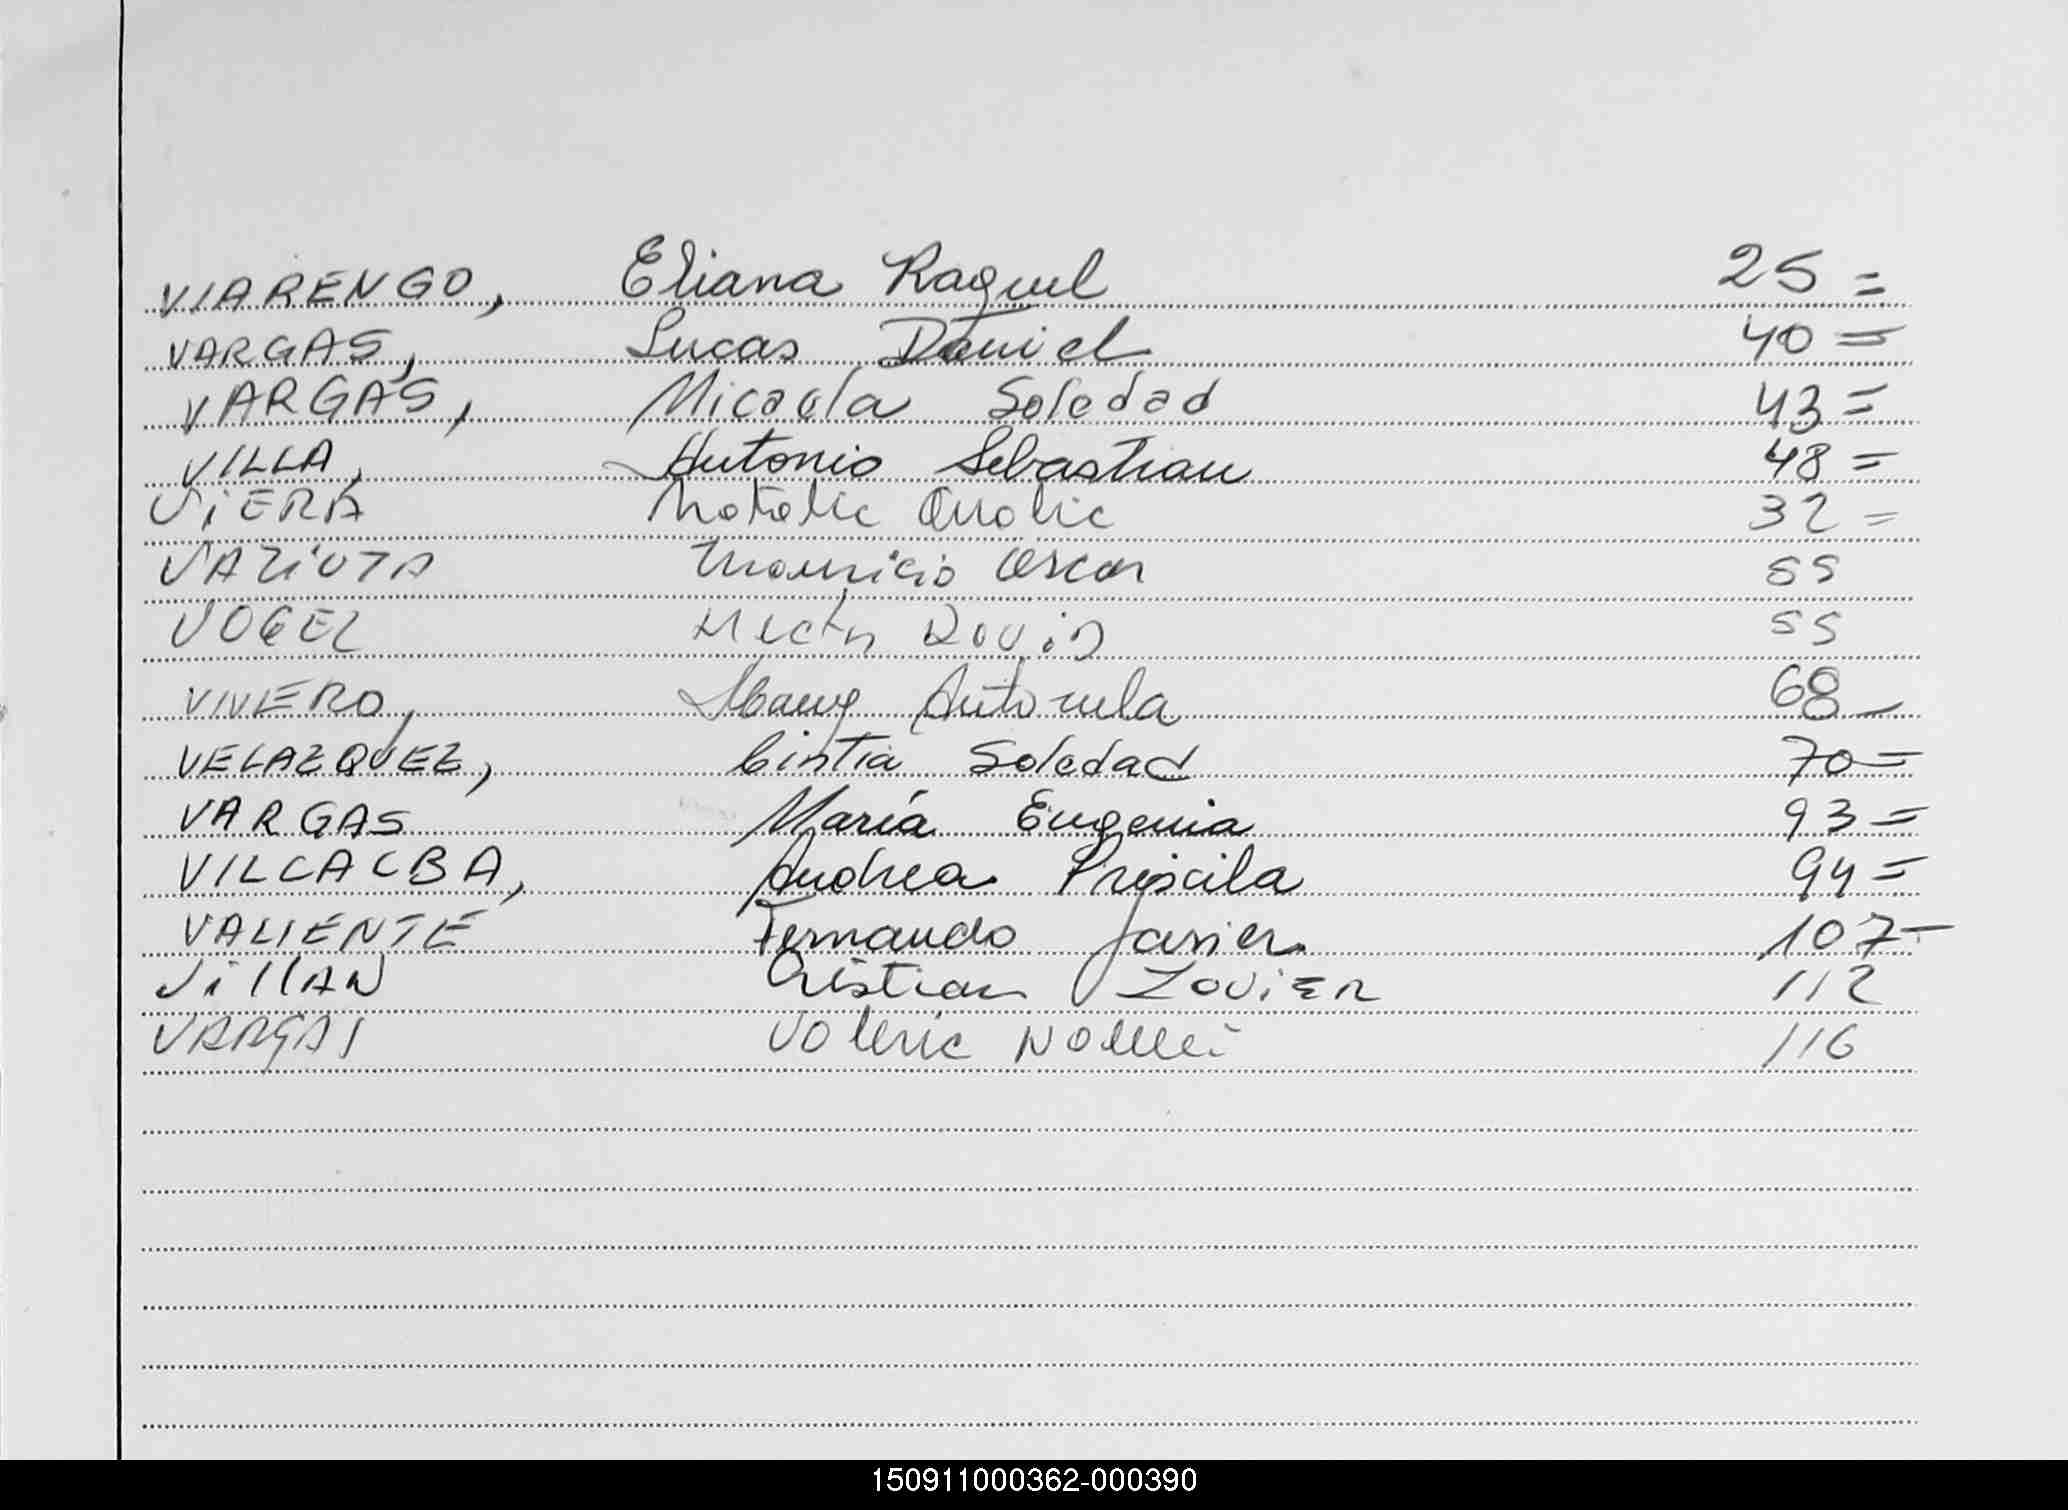 VIARENGO, Eliana Raquel 25=
VARGAS, Lucas Daniel 40=
VARGAS, Micaela Soledad 43=
VILLA, Antonio Sebastian 48=
ViERA Natalia Analia 32=
Mauricio Oscar 55
VOGEL Hector David 55
VIVERO, Antonela 68-
VELAZQUEZ, Cintia Soledad 70=
VARGAS María Eugenia 93=
VILLALBA, Andrea Priscila 94=
VALIENTE Fernando Javier 107-
VillAN Cristian 112
VARGAS Valeria Noemi 116
150911000362-000390